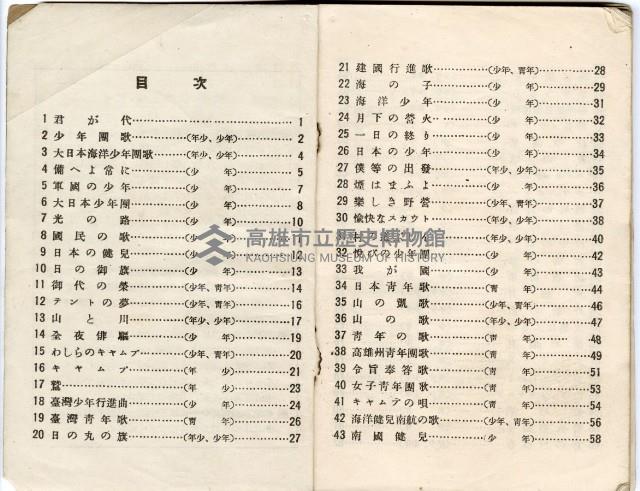 目次
1 君が代……………………………………1
2 少年團歌…………(年少、少年)……………2
3 大日本海洋少年團歌…(年少、少年)……………4
4 備へよ常に…………(少年)……………5
5 軍國の少年…………(少年)……………7
6 大日本少年團…………(少年)……………8
7 光の路…………(少年)……………10
8 國民の歌…………
9 日本の健兒…………(少年)……………12
10 日の御旗…………(少年)……………13
11 御代の榮…………(少年、靑年)……………14
12 テントの夢…………(少年、靑年)……………16
13 山と川…………(年少、少年)……………17
14 全夜俳驅…………(少年)……………19
15 わしらのキャムプ…………(少年、靑年)……………20
16 キャムプ…………(年少)……………21
17 鷲…………(少年)……………23
18 臺灣少年行進曲…………(少年)……………24
19 臺灣靑年歌…………(靑年)……………26
20 日の丸の旗…………(年少、少年)……………27
21 建國行進歌…………(少年、靑年)……………28
22 海の子…………(少年)……………29
23 海洋少年…………(少年)……………31
24 月下の營火…………(少年)……………32
25 一日の終り…………(少年)……………33
26 日本の少年…………(少年)……………34
27 僕等の出發…………(年少、少年)……………35
28 煙はまふよ…………(少年)……………36
29 樂しき野營…………(少年、靑年)……………37
30 愉快なスカウト…………(年少、少年)……………38
31 …………(年少、少年)……………40
32 悅びの少年團…………(少年)……………42
33 我が國…………(少年)……………43
34 日本靑年歌…………(靑年)……………44
35 山の凱歌…………(少年、靑年)……………46
36 山の歌…………(年少、少年)……………47
37 靑年の歌…………(靑年)……………48
38 高雄州靑年團歌…………(靑年)……………49
39 令旨奉答歌…………(靑年)……………51
40 女子靑年團歌…………(靑年)……………53
41 キャムプの唄…………(靑年)……………54
42 海洋健兒南航の歌…………(少年、靑年)……………56
43 南國健兒…………(少年)……………58
高雄市立歷史博物館
KAOHSIUNG MUSEUM OF HISTORY